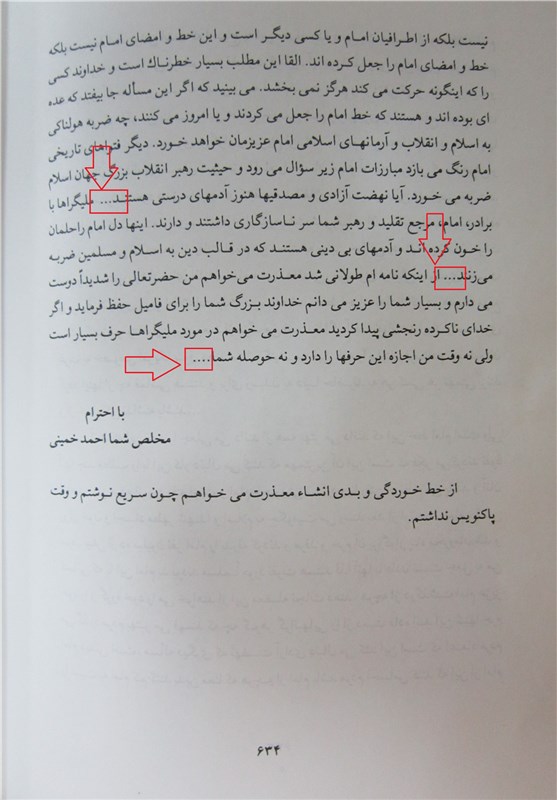 نیست بلکه از اطرافیان امام و یا کسی دیگر است و این خط و امضای امام نیست بلکه
خط و امضای امام را جعل کرده اند. القا این مطلب بسیار خطرناك است و خداوند کسی
را که اینگونه حرکت می کند هرگز نمی بخشد. می بینید که اگر این مسأله جا بیفتد که عده
ای بوده اند و هستند که خط امام را جعل می کردند و یا امروز می کنند، چه ضربه هولناکی
به اسلام و انقلاب و آرمانهای اسلامی امام عزیزمان خواهد خورد. دیگر فتواهای تاریخی
امام رنگ می بازد مبارزات امام زیر سؤال می رود و حیثیت رهبر انقلاب بزرگ جهان اسلام
ضربه می خورد. آیا نهضت آزادی و مصدقیها هنوز آدمهای درستی هستند... ملیگراها با
برادر، امام، مرجع تقلید و رهبر شما سر ناسازگاری داشتند و دارند. اینها دل امام راحلمان
را خون کرده اند و آدمهای بی دینی هستند که در قالب دین به اسلام و مسلمین ضربه
می‌زنند... از اینکه نامه ام طولانی شد معذرت می‌خواهم من حضرتعالی را شدیداً دوست
می دارم و بسیار شما را عزیز می دانم خداوند بزرگ شما را برای فامیل حفظ فرماید و اگر
خدای ناکرده رنجشی پیدا کردید معذرت می خواهم در مورد ملیگراها حرف بسیار است
ولی نه وقت من اجازه این حرفها را دارد و نه حوصله شما....
با احترام
مخلص شما احمد خمینی
از خط خوردگی و بدی انشاء معذرت می خواهم چون سریع نوشتم و وقت
پاکنویس نداشتم.
۶۳۴